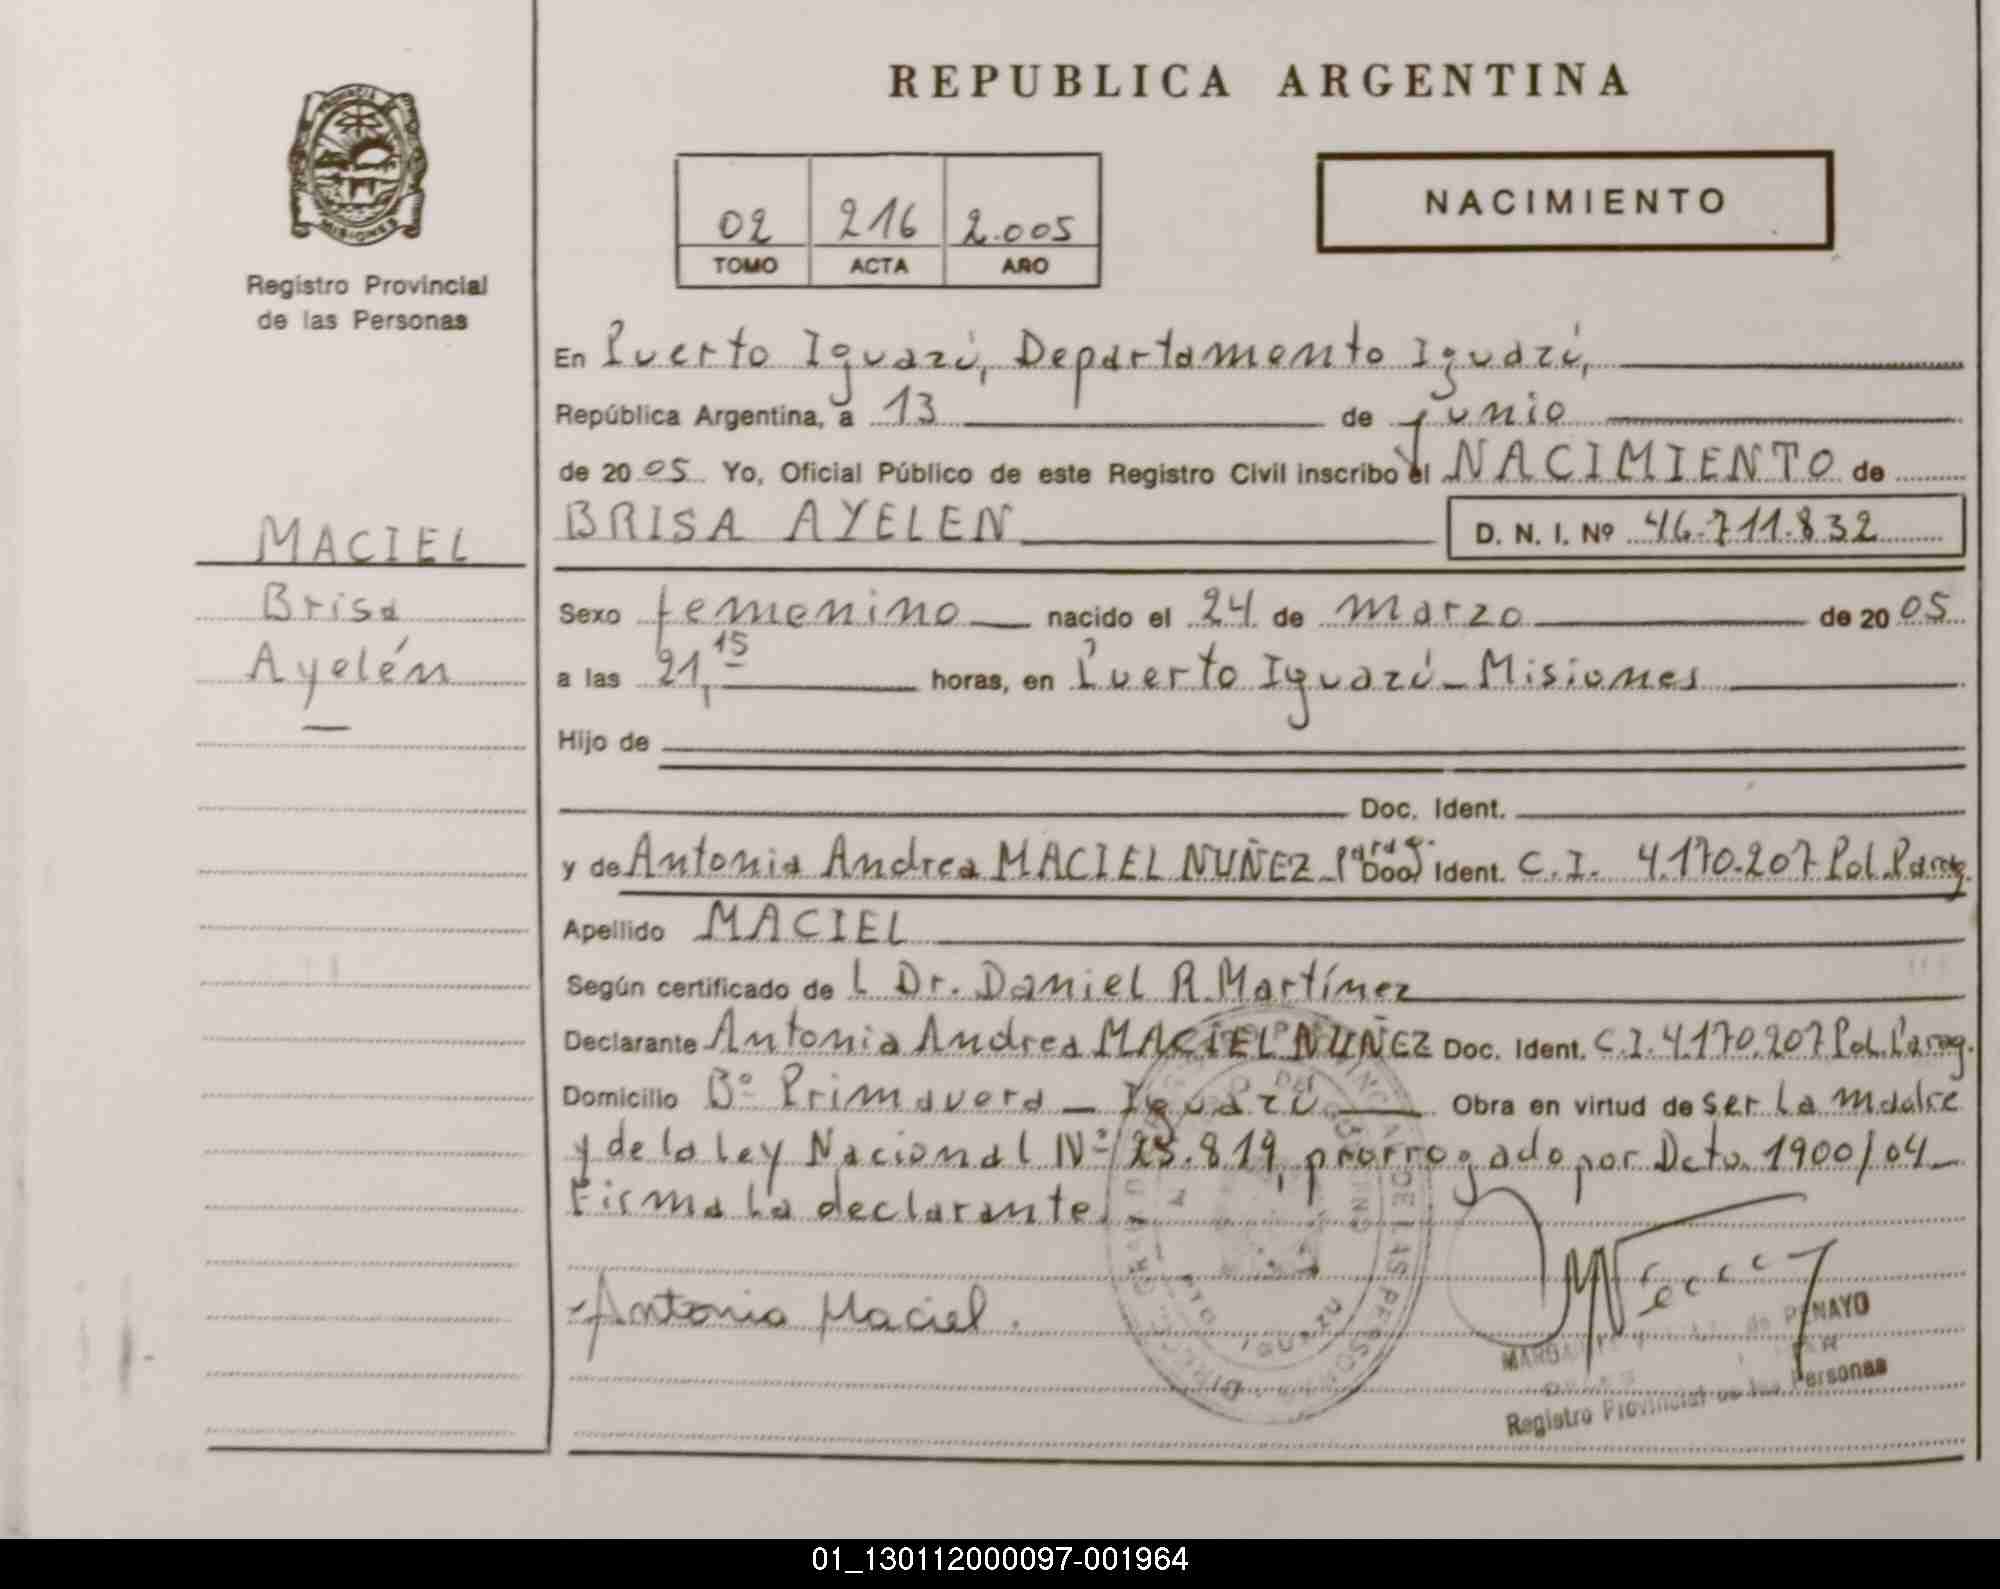 REPUBLICA ARGENTINA
PROVINCIA
MISIONES
Registro Provincial
de las Personas
02 216 2.005
TOMO ACTA AÑO
NACIMIENTO
En Puerto Iguazú, Departamento Iguazú,
República Argentina, a 13 de junio
de 20 05 Yo, Oficial Público de este Registro Civil inscribo el NACIMIENTO de
BRISA AYELEN D. N. I. Nº 46.711.832
MACIEL
Brisa
Ayelén
Sexo femenino nacido el 24 de marzo de 20 05
a las 21,15 horas, en Puerto Iguazú - Misiones
Hijo de
Doc. Ident.
y de Antonia Andrea MACIEL NUÑEZ Parag. Doc. Ident. C.I. 4.170.207 Pol. Parag.
Apellido MACIEL
Según certificado de l Dr. Daniel R. Martínez
Declarante Antonia Andrea MACIEL NUÑEZ Doc. Ident. C.I. 4.170.207 Pol. Parag.
Domicilio Bº Primavera - Iguazú Obra en virtud de ser la madre
y de la Ley Nacional Nº 25.819, prorrogado por Dcto. 1900/04
Firma la declarante.
Antonia Maciel.
DE LAS PERSONAS
IGUAZU
de PENAYO
Registro Provincial de las Personas
01_130112000097-001964